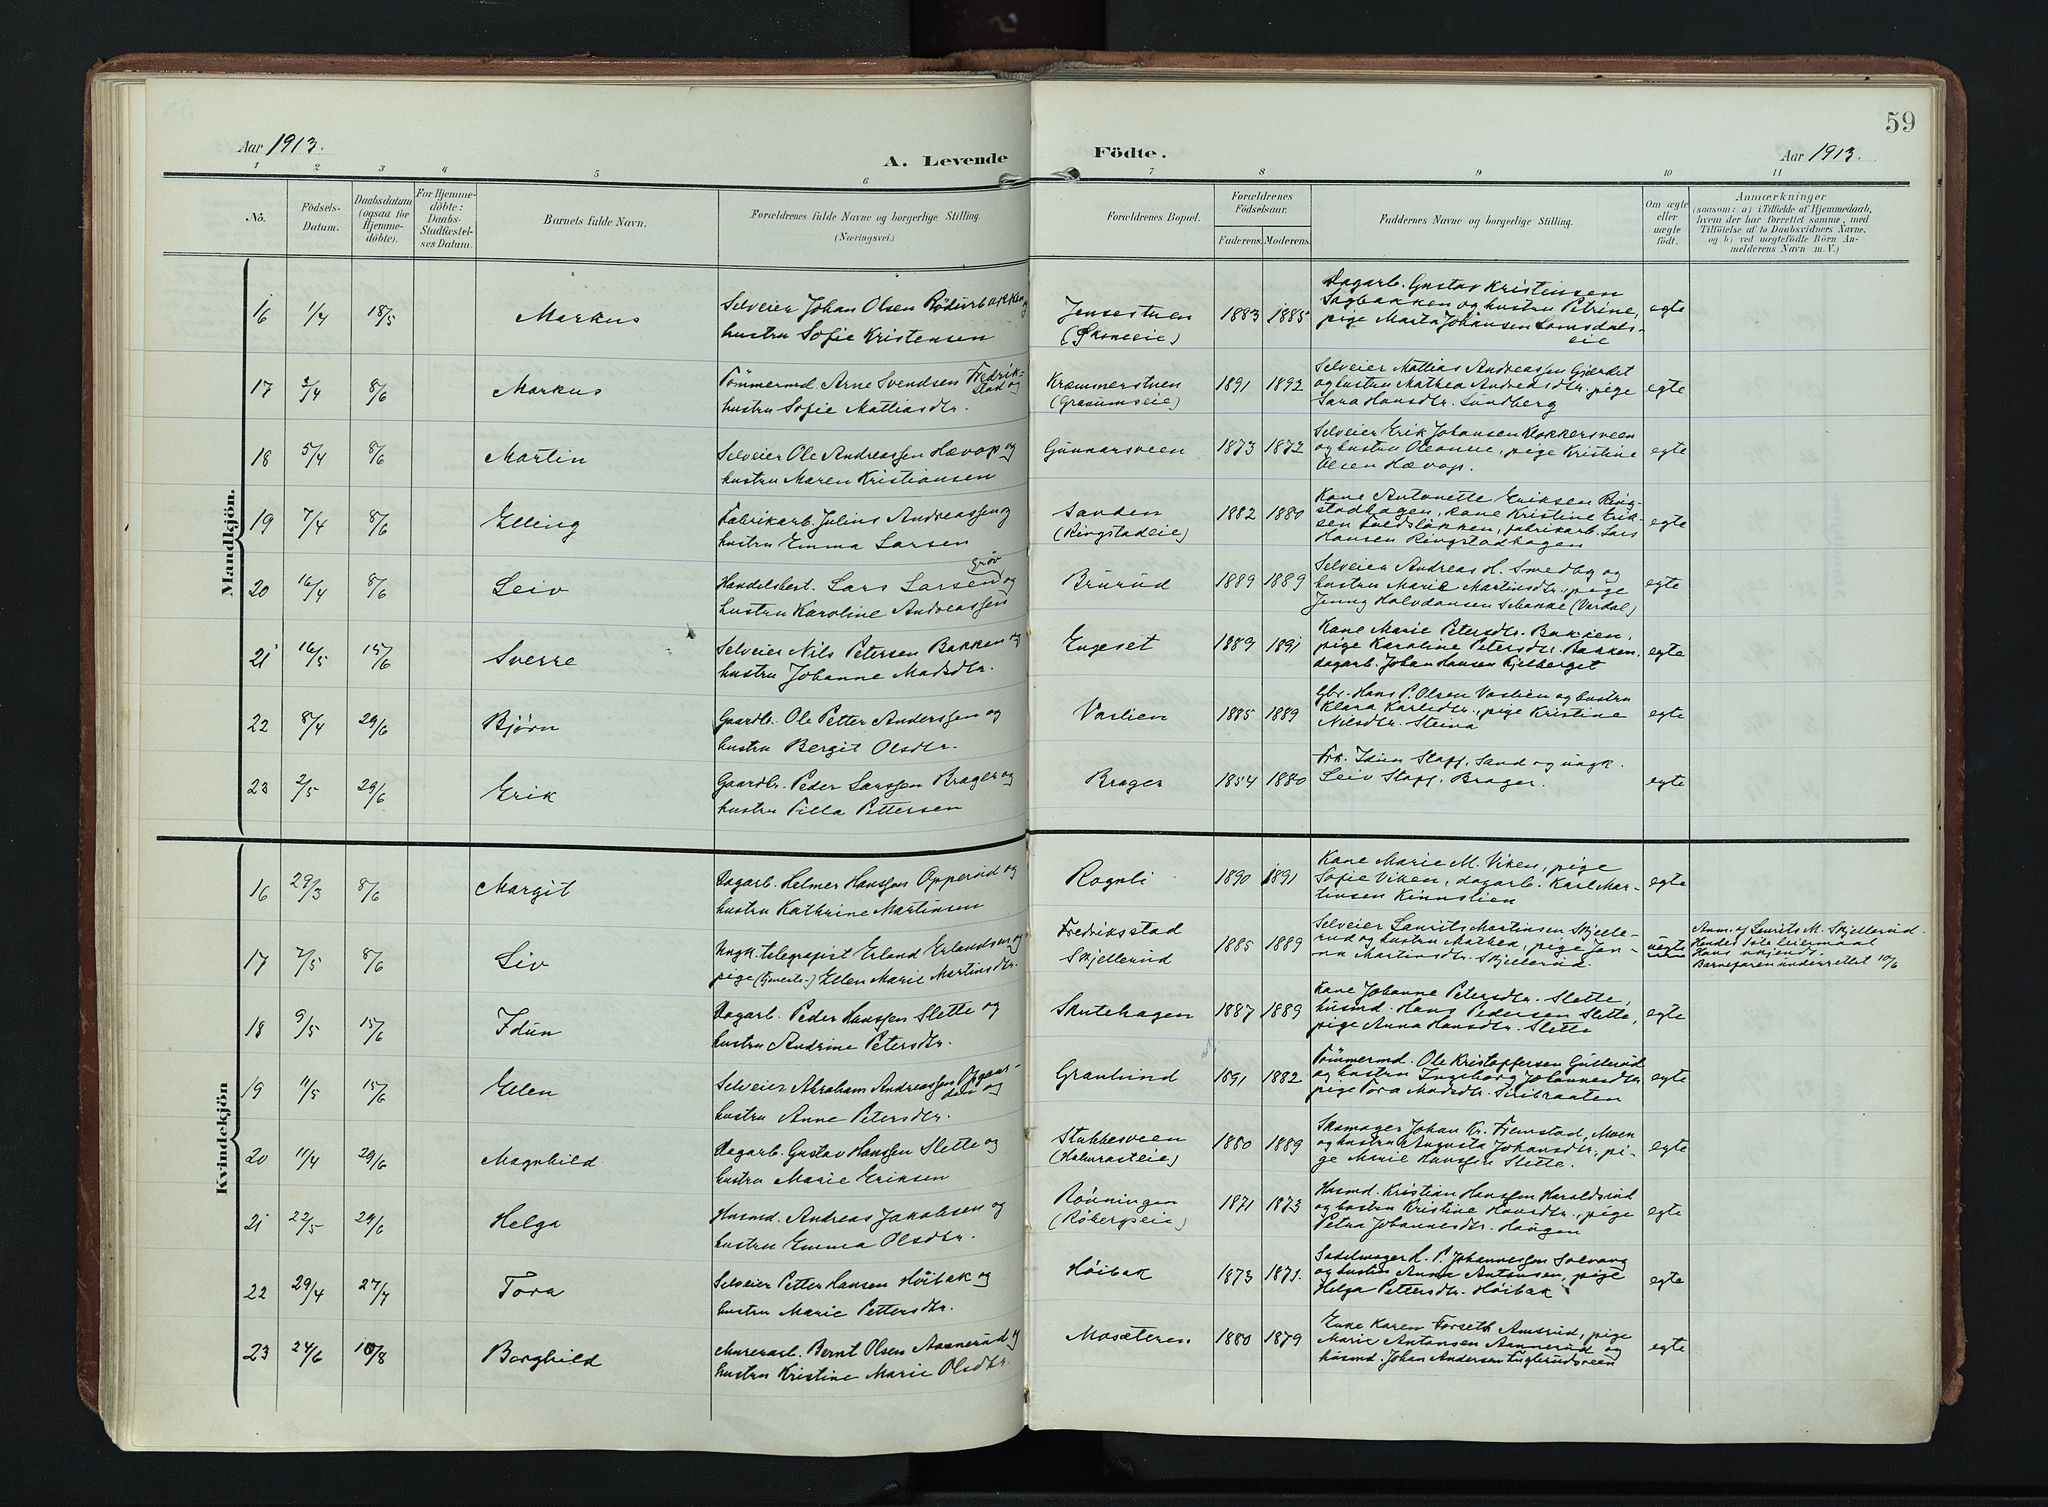 59
Aar 1913.
A. Levende Födte.
Aar 1913.
1 2 3 4 5 6 7 8 9 10 11
No.
Födsels-Datum.
Daabsdatum (ogsaa for Hjemme-döbte).
For Hjemme-döbte: Daabs-Stadfæstel-ses Datum.
Barnets fulde Navn.
Forældrenes fulde Navne og borgerlige Stilling. (Næringsvei.)
Forældrenes Bopæl.
Forældrenes Födselsaar.
Faderens. Moderens.
Faddernes Navne og borgerlige Stilling.
Om ægte eller uægte födt.
Anmærkninger
(saasom: a) i Tilfælde af Hjemmedaab,
hvem der har forrettet samme, med
Tilföielse af to Daabsvidners Navne.
og b) ved uægtefödte Börn An-
melderens Navn m. V.)
Mandkjön.
16 1/4 18/5 Markus
Selveier Johan Olsen Rödurbakken og
hustru Sofie Kristensen
Jensestuen
1883 1885
Dagarb. Gustav Kristinsen
Sagbakken og hustru Petrine,
pige Marta Johansen Lomsdals-
eie
egte
17 3/4 8/6 Markus
Tömmermd. Arne Svendsen Fredrik-
stad og
hustru Sofie Mattiasdtr.
Kræmmerstuen
(Graumseie)
1891 1892
Selveier Mattias Andreassen Gjerdet
og hustru Mathea Andreasdtr. pige
Sara Hansdtr. Lundberg
egte
18 5/4 8/6 Martin
Selveier Ole Andreassen Hævop og
hustru Maren Kristiansen
Gunnarsveen
1873 1872
Selveier Erik Johansen Klokkersveen
og hustru Oleane, pige Kristine
Olsen Hævop.
egte
19 7/4 8/6 Elling
Fabrikarb. Julius Andreassen og
hustru Emma Larsen
Sanden
(Ringstadeie)
1882 1880
Kone Antonette Eriksen Ring-
stadhagen, kone Kristine Erik-
sen, fabrikarb. Lars
Hansen Ringstadhagen
egte
20 16/4 8/6 Leiv
Handelsbest. Lars Larsen Gröv og
hustru Karoline Andreassen
Brurud
1889 1889
Selveier Andreas H. Smedby og
hustru Marie Martinsdtr., pige
Jenny Halvdansen Schanke (Vardal)
egte
21 16/5 15/6 Sverre
Selveier Nils Petersen Bakken og
hustru Johanne Madsdtr.
Engeset
1889 1891
Kone Marie Petersdtr. Bakken,
pige Karoline Petersdtr. Bakken,
dagarb. Johan Hansen Kjelberget
egte
22 8/4 29/6 Björn
Gaardbr. Ole Petter Anderssen og
hustru Bergit Olsdtr.
Vaslien
1885 1889
Gbr. Hans P. Olsen Vaslien og hustru
Klara Karlsdtr., pige Kristine
Nilsdtr. Steina
egte
23 2/5 29/6 Erik
Gaardbr. Peder Larssen Brager og
hustru Tilla Pettersen
Brager
1854 1880
Frk. Idun Staff, Sand og ungk.
Leiv Staff, Brager.
egte
Kvindekjön
16 29/3 8/6 Margit
Dagarb. Helmer Hanssen Opperud og
hustru Kathrine Martinsen
Rognli
1890 1891
Kone Marie M. Viken, pige
Sofie Viken, dagarb. Karl Mar-
tinsen Kinnslien
egte
17 7/5 8/6 Liv
Ungk. telegrafist Erland Erlandsen og
pige Ellen Marie Martinsdtr.
Fredriksstad
Skjellerud
1885 1889
Selveier Laurits Martinsen Skjelle-
rud og hustru Mathea, pige Jan-
na Martinsdtr. Skjellerud.
uegte
Anm. af Laurits M. Skjellerud.
Hendes 1ste leiermaal
Hans ukjendt.
Barnefaren underrettet 10/6
18 9/5 15/6 Idun
Dagarb. Peder Hanssen Slette og
hustru Andrine Petersdtr.
Skutehagen
1887 1889
Kone Johanne Petersdtr. Slette,
husmd. Hans Pedersen Slette,
pige Anna Hansdtr. Slette
egte
19 11/5 15/6 Ellen
Selveier Abraham Andreassen Opgaar-
den og
hustru Anne Petersdtr.
Granlund
1891 1882
Tömmermd. Ole Kristoffersen Gullerud
og hustru Ingeborg Johannesdtr.
pige Tora Madsdtr. Siribraaten
egte
20 11/4 29/6 Magnhild
Dagarb. Gustav Hanssen Slette og
hustru Marie Eriksen
Stubbesveen
1880 1889
Skomager Johan Kr. Fremstad, Moen
og hustru Augusta Johansdtr., pi-
ge Marie Hanssen Slette.
egte
21 22/5 29/6 Helga
Husmd. Andreas Jakobsen og
hustru Emma Olsdtr.
Rönningen
(Röbergseie)
1871 1873
Husmd. Kristian Hanssen Haraldsrud
og hustru Kristine Hansdtr., pige
Petra Johannesdtr. Haugen
egte
22 29/4 27/7 Tora
Selveier Petter Hansen Höibak og
hustru Marie Pettersdtr.
Höibak
1873 1871.
Sadelmager H. P. Johannessen Solvang
og hustru Anna Antonsen, pige
Helga Pettersdtr. Höibak
egte
23 24/6 10/8 Borghild
Murerarb. Bernt Olsen Aannerud og
hustru Kristine Marie Olsdtr.
Mosæteren
1880 1879
Enke Karen Forseth Amdrud, pige
Marie Antonsen Aannerud og
husmd. Johan Andersen Fuglerudsveen
egte